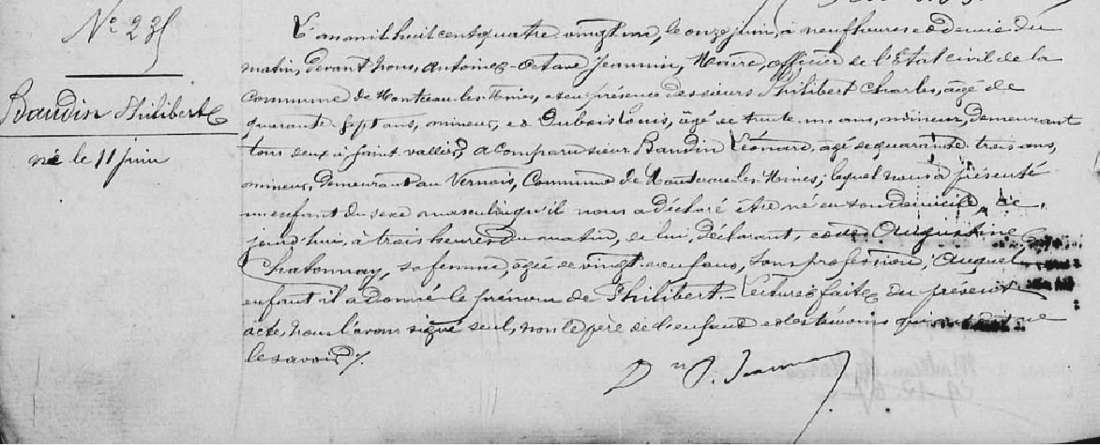 N° 235
Baudin Philibert
né le 11 juin
L'an mil huit cent quatre vingt un, le onze juin, à neuf heures et demie du
matin, devant Nous, Antoine-Octave Jeannin, Maire, officier de l'Etat civil de la
Commune de Montceau-les-Mines, et en présence des sieurs Philibert Charles, âgé de
quarante sept ans, mineur, et Dubois Louis, âgé de trente un ans, mineur, demeurant
tous deux à Saint-vallier, a comparu sieur Baudin Léonard, âgé de quarante trois ans,
mineur, demeurant au Vernois, Commune de Montceau les Mines, lequel nous a présenté
un enfant du sexe masculin qu'il nous a déclaré être né en son domicile, ce
jourd'hui, à trois heures du matin, de lui, déclarant, et de Augustine
Chatonnay, sa femme, âgée de vingt neuf ans, sans profession, auquel
enfant il a donné le prénom de Philibert. - Lecture faite du présent
acte, nous l'avons signé seul, non le père de l'enfant et les témoins qui ont dit ne
le savoir./.
Dr O. Jeannin